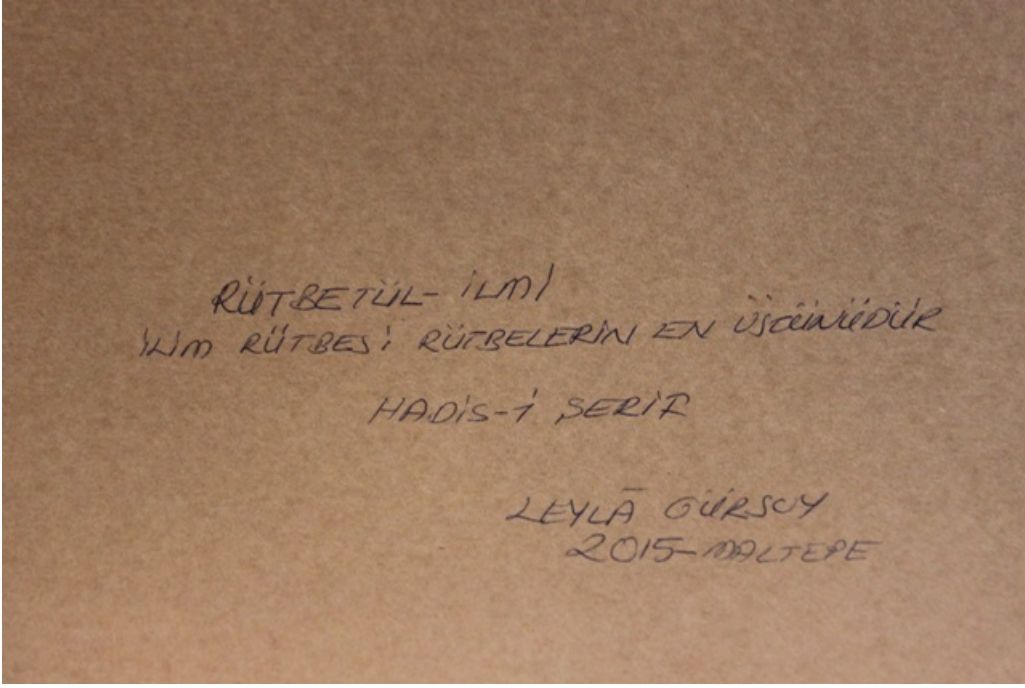 RÜTBETÜL- İLMİ
İLİM RÜTBESİ RÜTBELERİN EN ÜSTÜNÜDÜR
HADİS-İ ŞERİF
LEYLÂ GÜRSOY
2015-MALTEPE